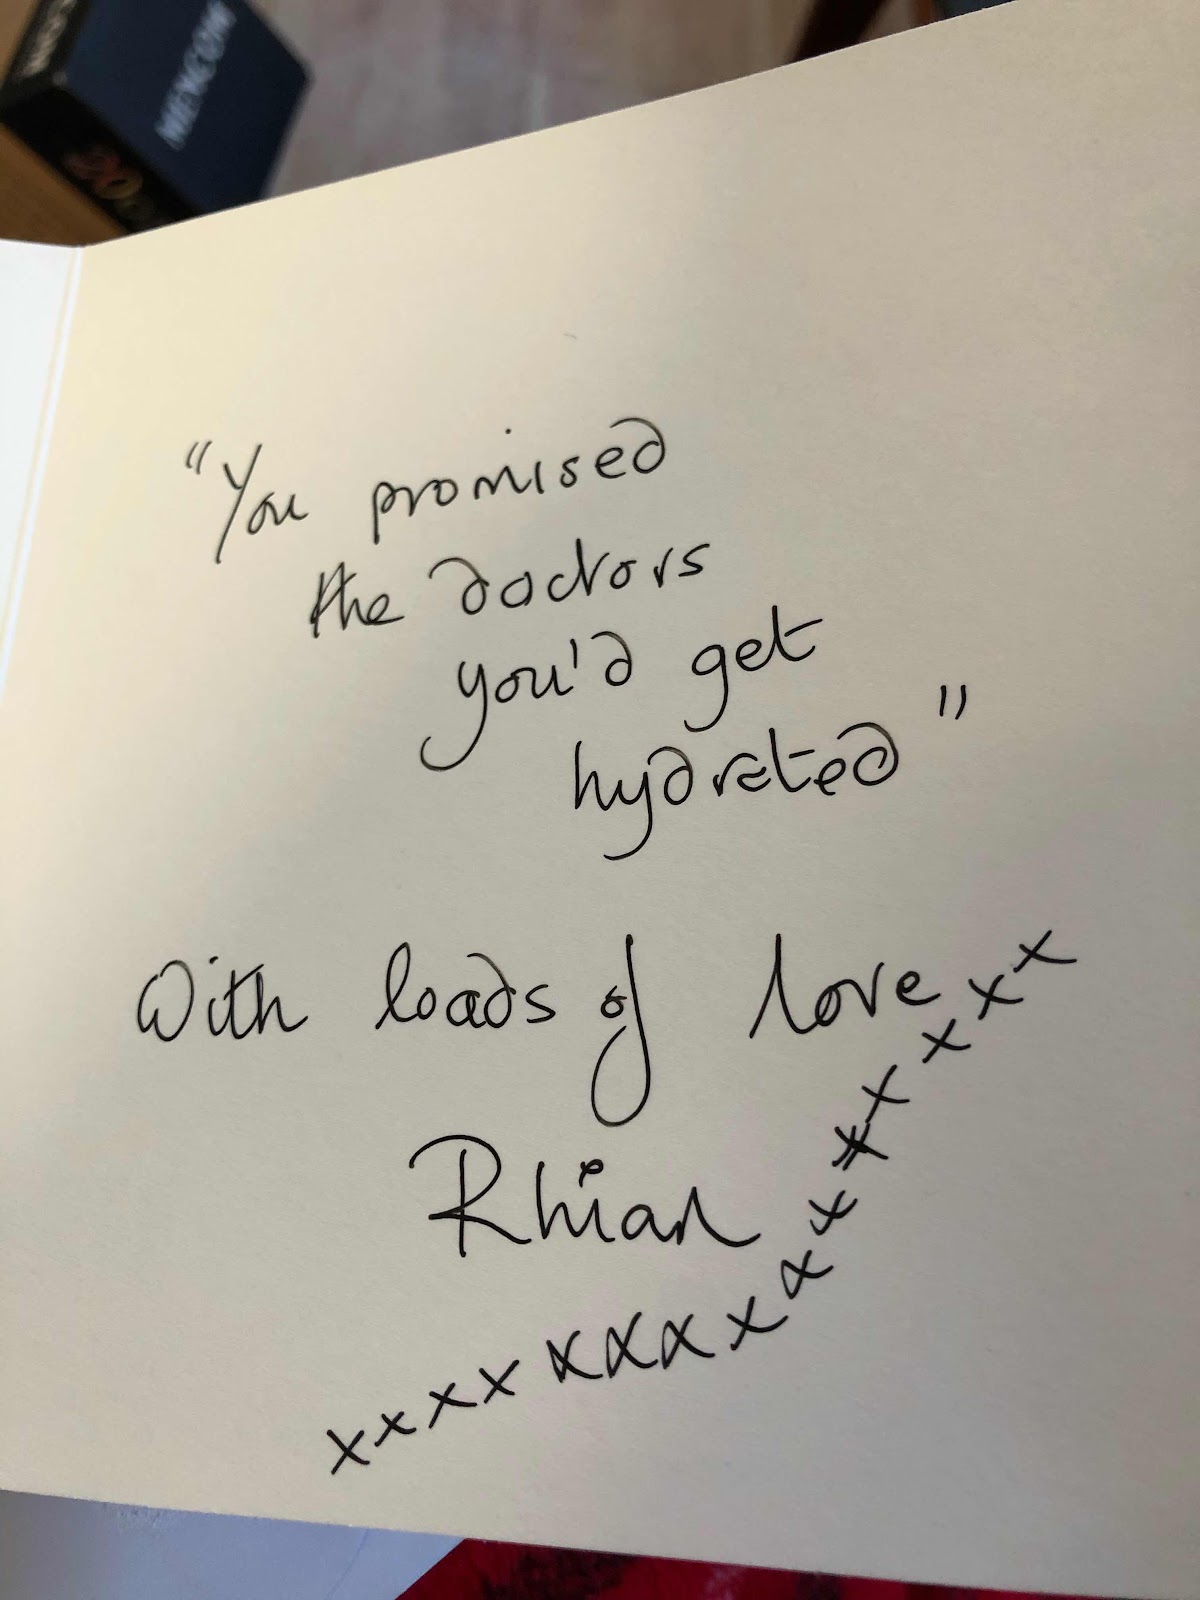 "You promised
the doctors
you'd get
hydrated"
With loads of love
Rhian
xxxxxxxxxxxxxxx
20